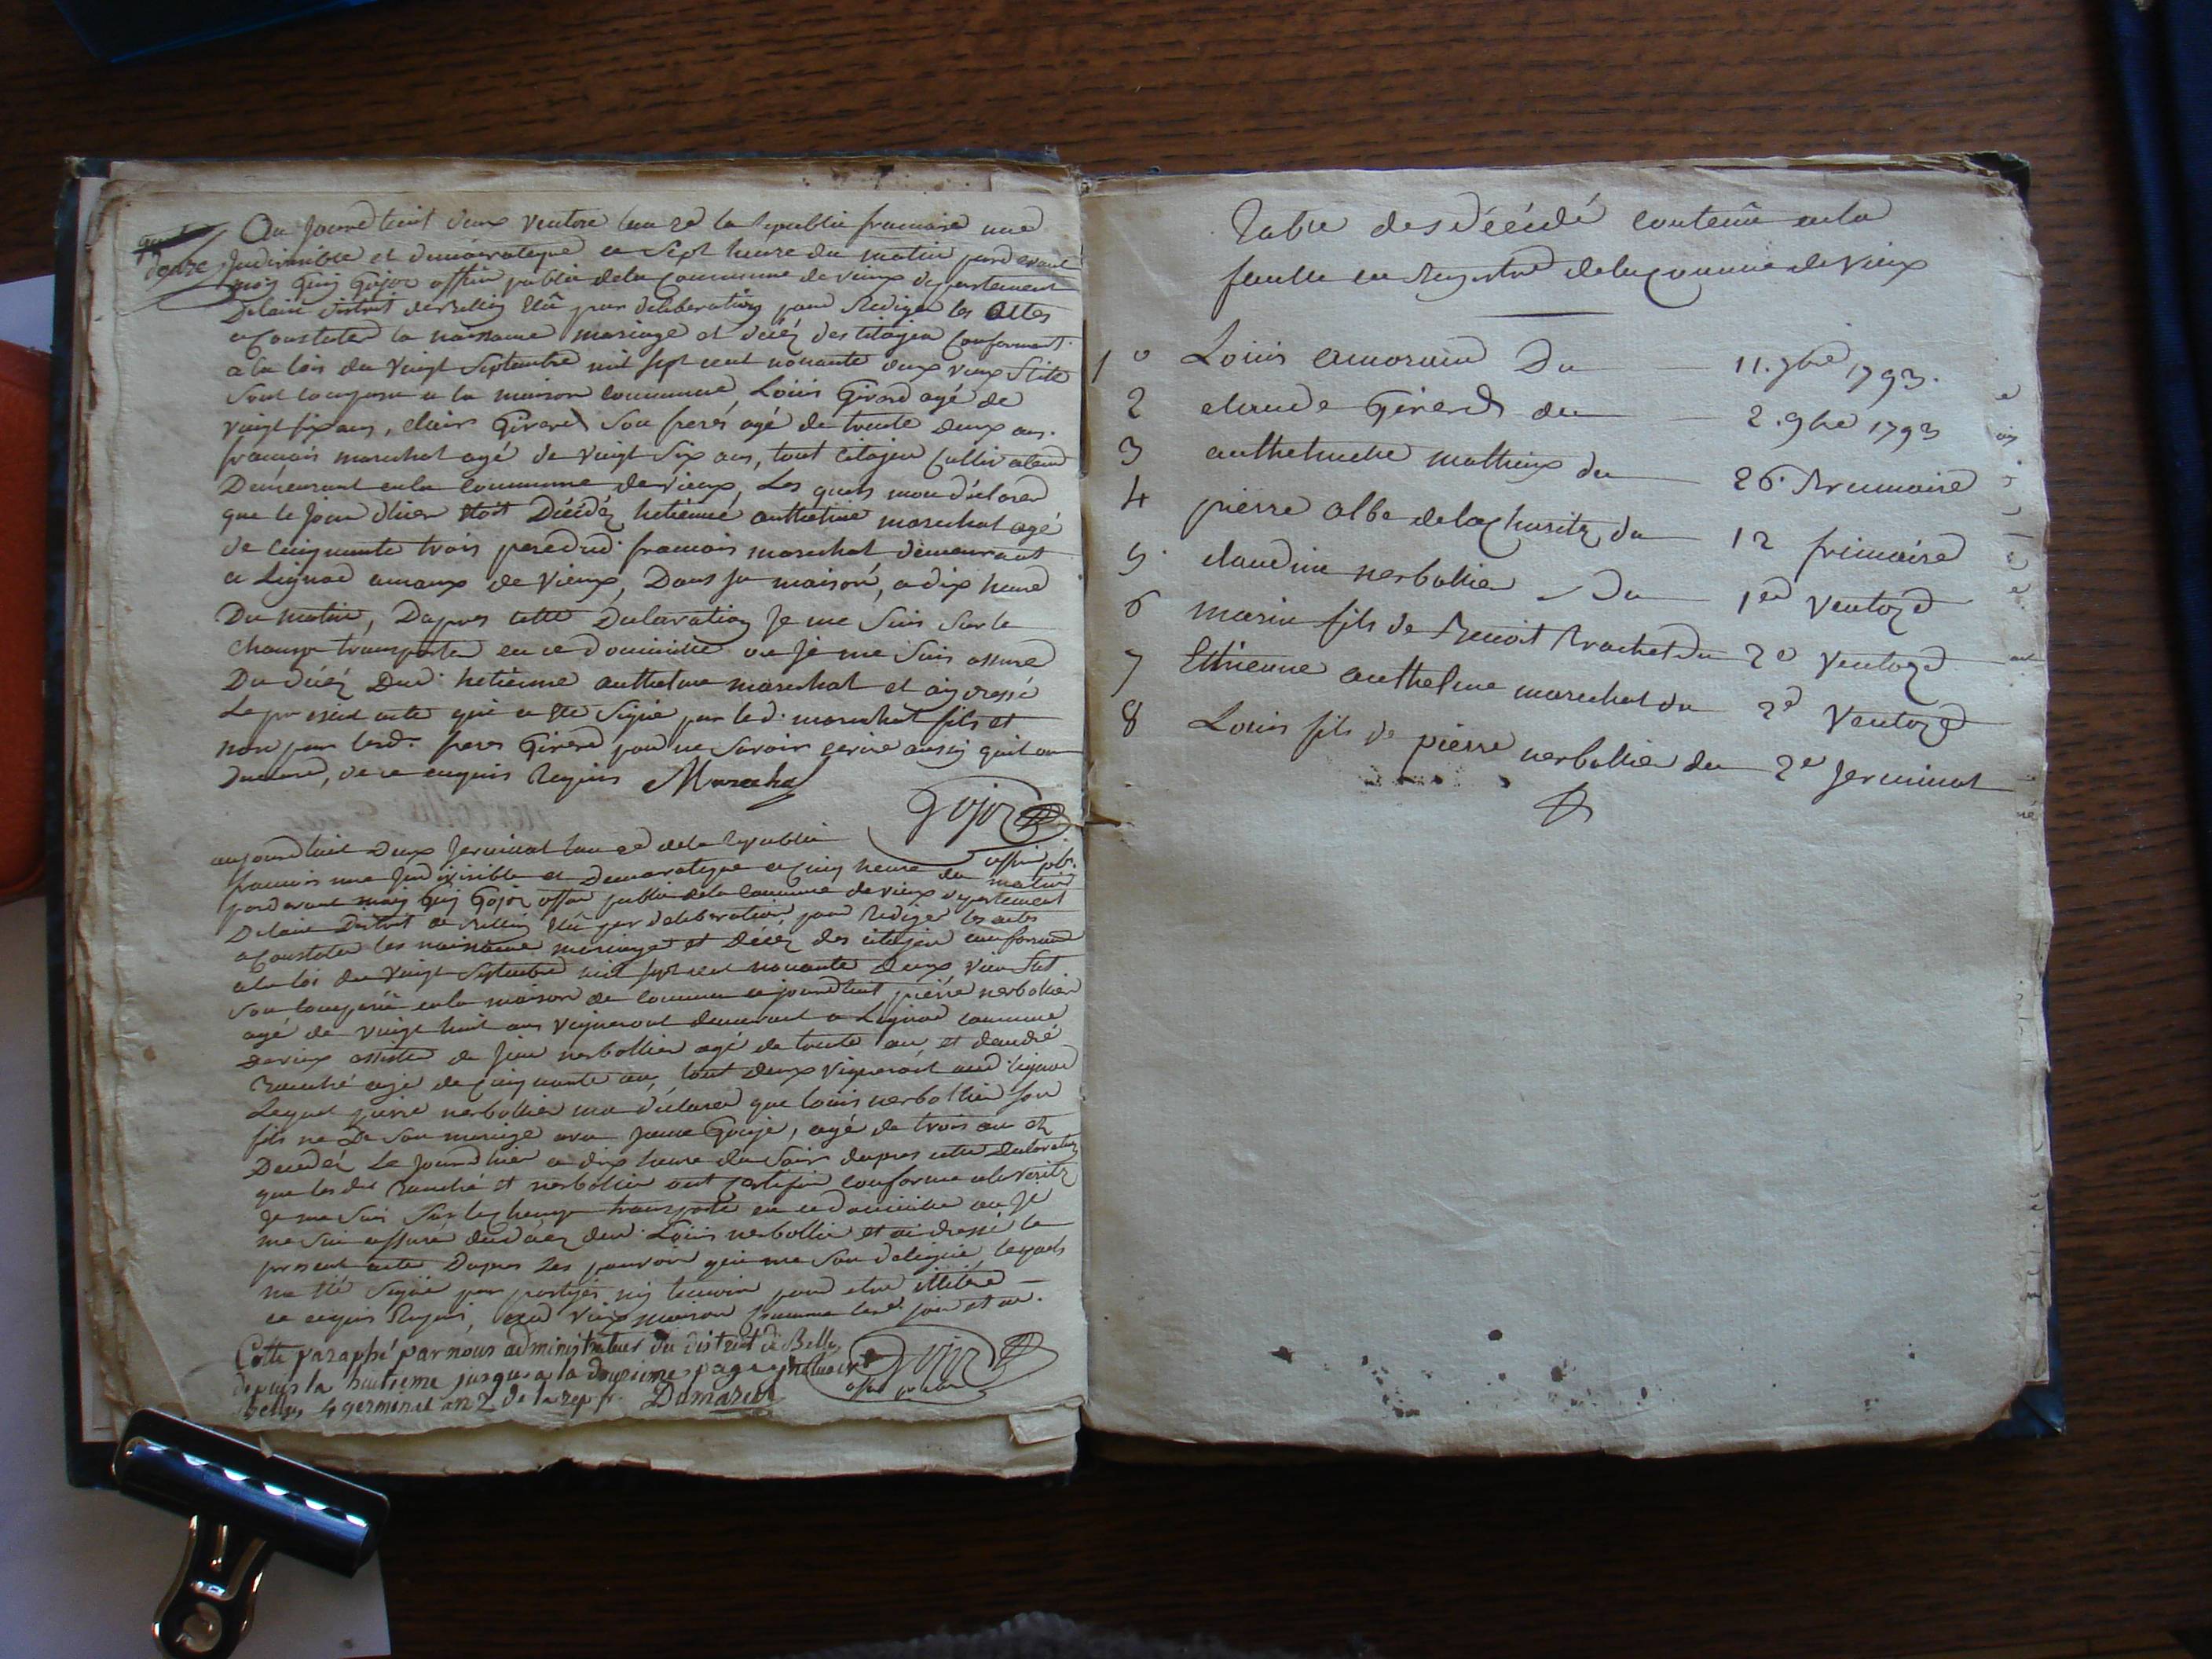 douze
Au Jourdhuit deux ventose lan 2e de la Republic francaise une
Indivisible et démocratique a sept heure du matin pard evant
moy Guy Gojoz offier public dela Commune de vieux departement
Delain district de Belley Elû par deliberation pour Rediger les Actes
a Constater la naissance mariage et décéz des citojen Conforment
a la lois du vingt Septembre mil sept cent nonante deux vieux Stile
Sont comparu a la maison commune, Louis Girard agé de
vingt six ans, clair Girard son frere agé de trente deux ans.
francois marechal agé de vingt Six ans, tout citojen Cultivateur
Demeurant enla Commune de vieux, Les quels mon déclared
que le Jour d'hier Etoit Décédéz hetienne anthelme marechal agé
de cinquante trois peredud. francois marechal demeurant
a Lignod ameaux de vieux, Dans sa maison, a dix heure
Du matin, Dapres cette Declaration Je me Suis Sur le
champ transporter en ce Domicille ou Je me Suis assured
Du décéz Dud. hetienne anthelme marechal et ay dressé
Le present acte que a Eté Signé par led. marechal fils et
non par lesd. freres Girard pour ne Savoir ecrire ainsy quil ont
Declared, de ce enquis Requis Marechal
Gojoz
offier pbc.
aujourdhuit Deux Jerminal lan 2e dela Republic
francois une Indivisible et Democratique a cinq heure du matin
pardevant moy Guy Gojoz offier public dela Commune de vieux departement
Delain District de Belley Elû par deliberation pour Rediger les actes
a Constater les naissance mariage et Décéz des citojen conforment
ala loi du vingt Septembre mil sept cent nonante Deux vieu Stil
Son comparû enla maison de commune cejourdhuit pierre nerbollier
agé de vingt huit ans vigneront demeurant a Lignod commune
devieux assisté de Jean nerbollier agé de trente an et dandré
agé de cinquante an, tout Deux vigneront aud. lignod
Lequel pierre nerbollier ma déclared que louis nerbollier son
fils ne De son mariage avec Jeanne Gouje, agé de trois an et
Decedéz Le Jourdhier a dix heure du Soir dapres cette Declaration
que lesdis et nerbollier ont certifier conforme ala verité
Je me Suis Sur le champ transporté en ce domicille ou Je
me Sui assuré dudécéz dud. Louis nerbollier et ai dressé le
present acte Dapres les pouvoir qui me Son deleguée, lequels
na Eté Signé par partijes nij temoin pour etre illitéré
ce enquis Requis, aud vieux maison commune lesd. jour et an.
Gojoz
offier public
Cotté paraphé par nous administrateur du district de Belley
depuis la huitieme jusqu'a la douzieme page inclusivt
Belley 4 germinal an 2 de la rep fr. Damarest
Table des décédé contenû enla
feuille en Registred delacommune de vieux
1o Louis amorain Du 11. 9bre 1793.
2 claude Girard du 2. 9bre 1793
3 anthelmette mathieux du 26. Brumaire
4 pierre albe delacharitz du 12 frimaire
5. claudine nerbollier Du 1er ventoze
6 marin fils de Benoit Brachet du 2e ventoze
7 Etienne anthelme marechal du 2e ventoze
8 Louis fils de pierre nerbollier du 2e Jerminal